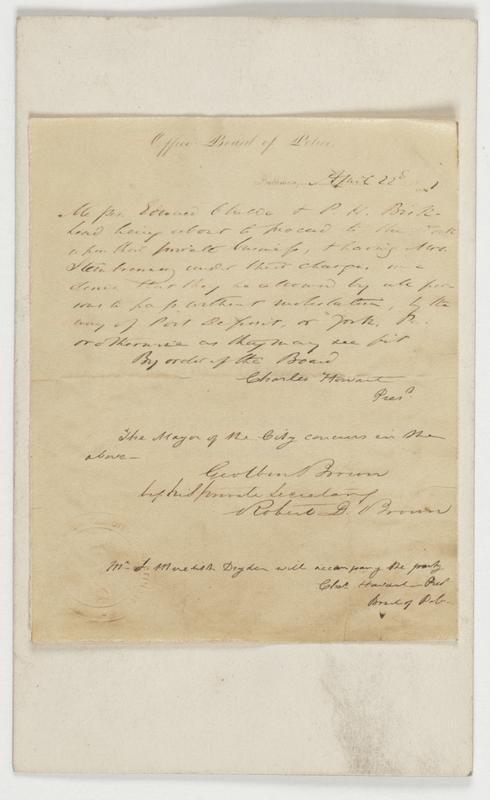 Office Board of Police
Baltimore, April 22d
Messrs. Edward Childe & P. H. Birck-
head being about to proceed to New York
upon their private business, & having Mrs.
Steinbrenner under their charge, we
desire that they be allowed by all per
sons to pass without molestation, by the
way of Port Deposit, or York, Pa.
or otherwise as they may see fit
By order of the Board
Charles Howard
Prest
The Mayor of the City concurs in the
above—
Geo Wm Brown
by his private Secretary
Robert D. Brown
Mr J. Meredith Dryden will accompany the party
Chas Howard Prest
Board of Pol.